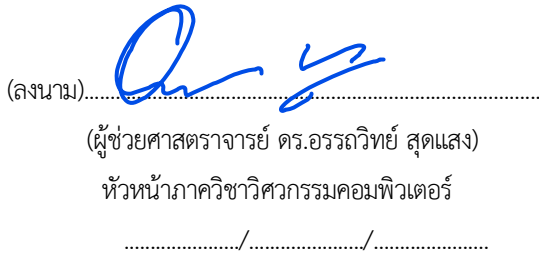 (ลงนาม)..........................................................................................
(ผู้ช่วยศาสตราจารย์ ดร.อรรถวิทย์ สุดแสง)
หัวหน้าภาควิชาวิศวกรรมคอมพิวเตอร์
....................../....................../......................